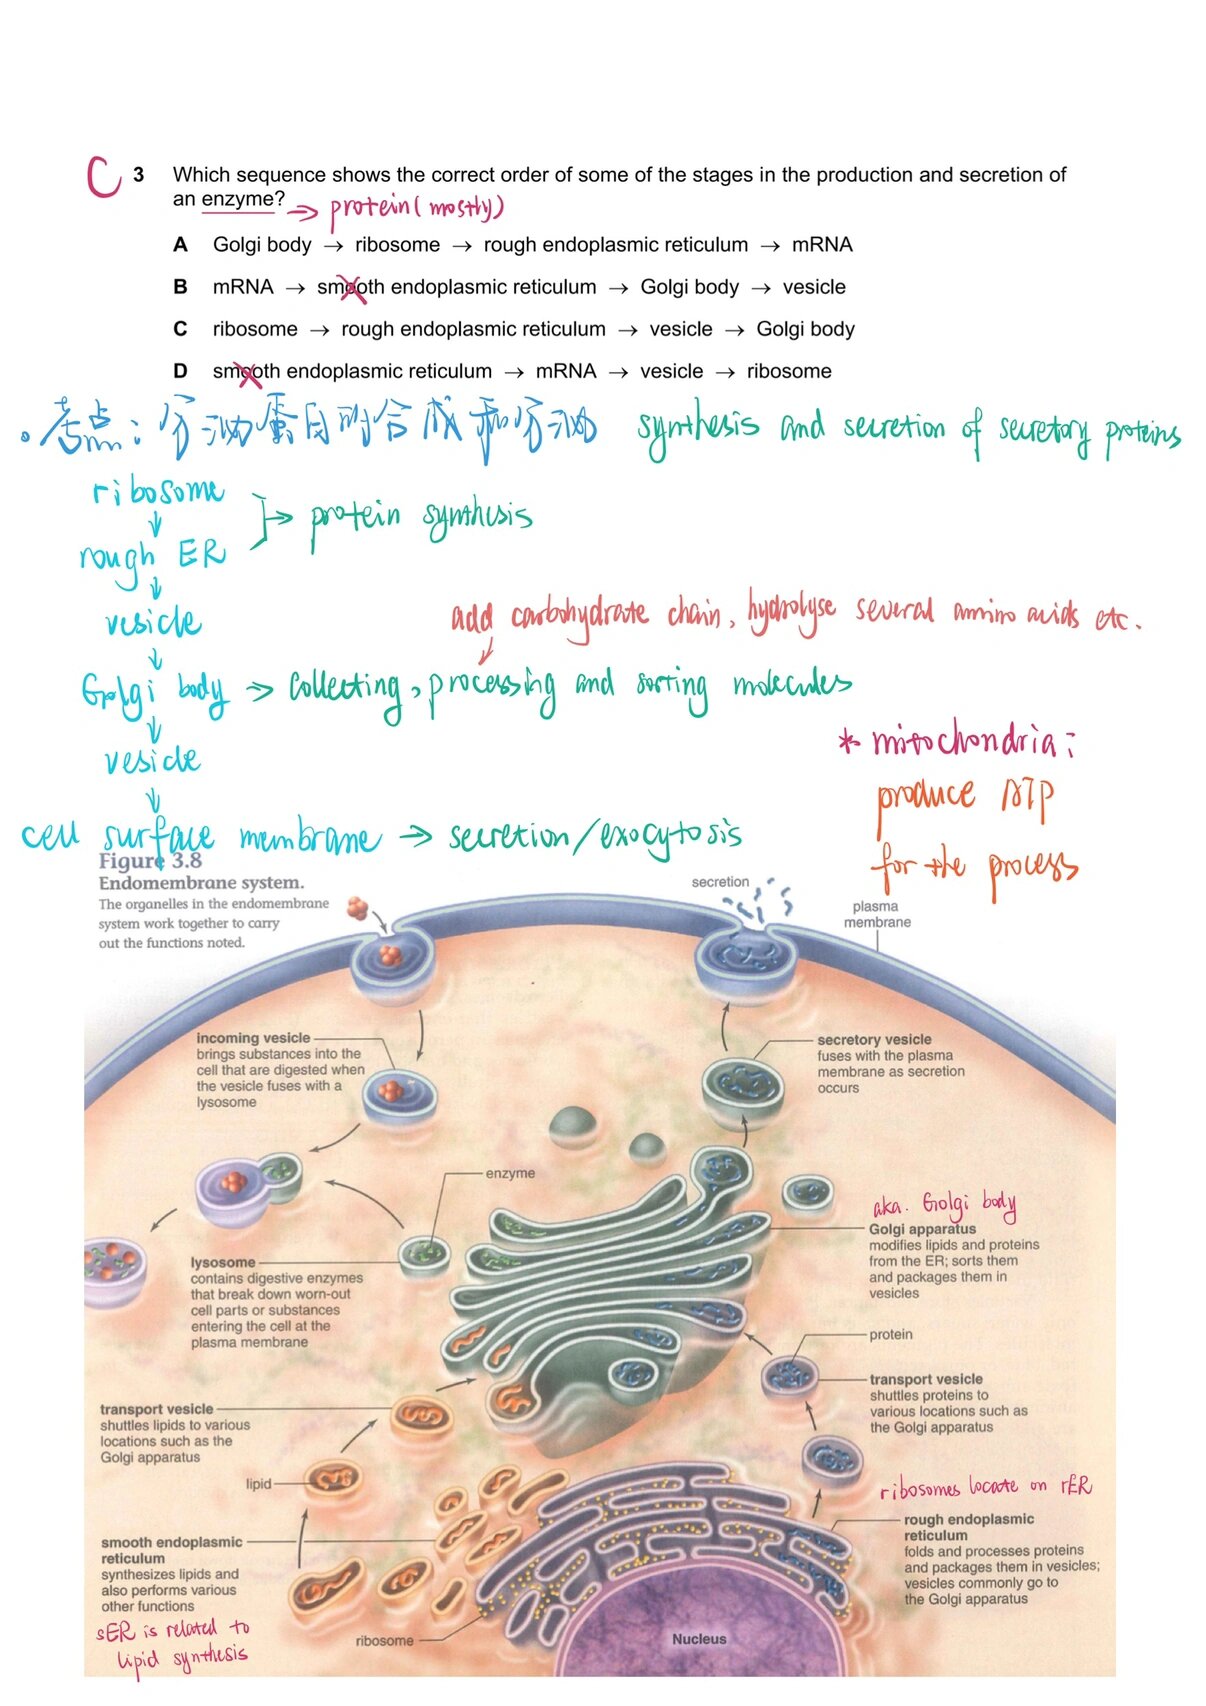 C 3 Which sequence shows the correct order of some of the stages in the production and secretion of
an enzyme? → protein (mostly)
A Golgi body → ribosome → rough endoplasmic reticulum → mRNA
B mRNA → smooth endoplasmic reticulum → Golgi body → vesicle
C ribosome → rough endoplasmic reticulum → vesicle → Golgi body
D smooth endoplasmic reticulum → mRNA → vesicle → ribosome
。考点：分泌蛋白的合成和分泌 synthesis and secretion of secretory proteins
ribosome
↓
rough ER
} → protein synthesis
↓
vesicle
add carbohydrate chain, hydrolyse several amino acids etc.
↓
Golgi body → collecting, processing and sorting molecules
↓
vesicle
* mitochondria:
produce ATP
for the process
↓
cell surface membrane → secretion/exocytosis
Figure 3.8
Endomembrane system.
The organelles in the endomembrane
system work together to carry
out the functions noted.
secretion
plasma
membrane
incoming vesicle
brings substances into the
cell that are digested when
the vesicle fuses with a
lysosome
secretory vesicle
fuses with the plasma
membrane as secretion
occurs
enzyme
aka. Golgi body
Golgi apparatus
modifies lipids and proteins
from the ER; sorts them
and packages them in
vesicles
lysosome
contains digestive enzymes
that break down worn-out
cell parts or substances
entering the cell at the
plasma membrane
protein
transport vesicle
shuttles proteins to
various locations such as
the Golgi apparatus
transport vesicle
shuttles lipids to various
locations such as the
Golgi apparatus
lipid
ribosomes locate on rER
rough endoplasmic
reticulum
folds and processes proteins
and packages them in vesicles;
vesicles commonly go to
the Golgi apparatus
smooth endoplasmic
reticulum
synthesizes lipids and
also performs various
other functions
sER is related to
lipid synthesis
ribosome
Nucleus